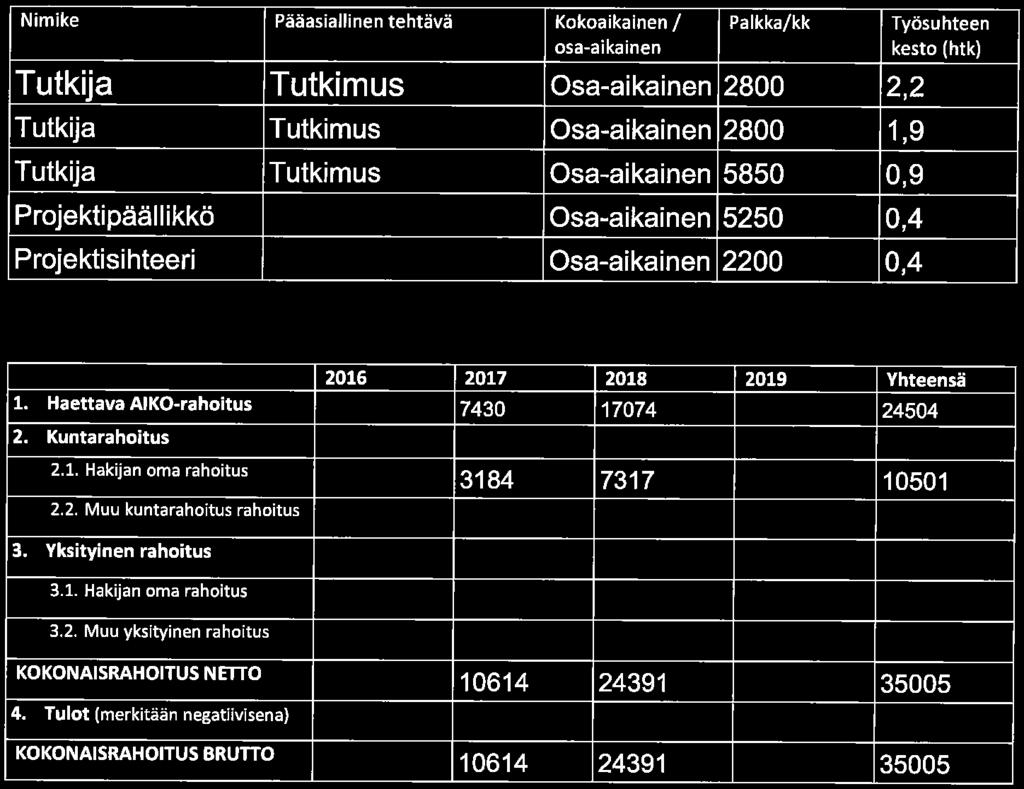 Nimike Pääasiallinen tehtävä Kokoaikainen / osa-aikainen Palkka/kk Työsuhteen kesto (htk)
Tutkija Tutkimus Osa-aikainen 2800 2,2
Tutkija Tutkimus Osa-aikainen 2800 1,9
Tutkija Tutkimus Osa-aikainen 5850 0,9
Projektipäällikkö Osa-aikainen 5250 0,4
Projektisihteeri Osa-aikainen 2200 0,4
2016 2017 2018 2019 Yhteensä
1. Haettava AIKO-rahoitus 7430 17074 24504
2. Kuntarahoitus
2.1. Hakijan oma rahoitus 3184 7317 10501
2.2. Muu kuntarahoitus rahoitus
3. Yksityinen rahoitus
3.1. Hakijan oma rahoitus
3.2. Muu yksityinen rahoitus
KOKONAISRAHOITUS NETTO 10614 24391 35005
4. Tulot (merkitään negatiivisena)
KOKONAISRAHOITUS BRUTTO 10614 24391 35005